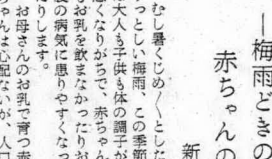 ―梅雨どきの
赤ちゃんの
新
むし暑くじめ〱とした
っとしい梅雨、この季節
は大人も子供も体の調子が
なりがちで、赤ちゃん
もお乳を飲まなかったりが
の病気に患りやすくなっ
たりします。
お母さんのお乳で育つ赤
ちゃんは心配ないが、人口